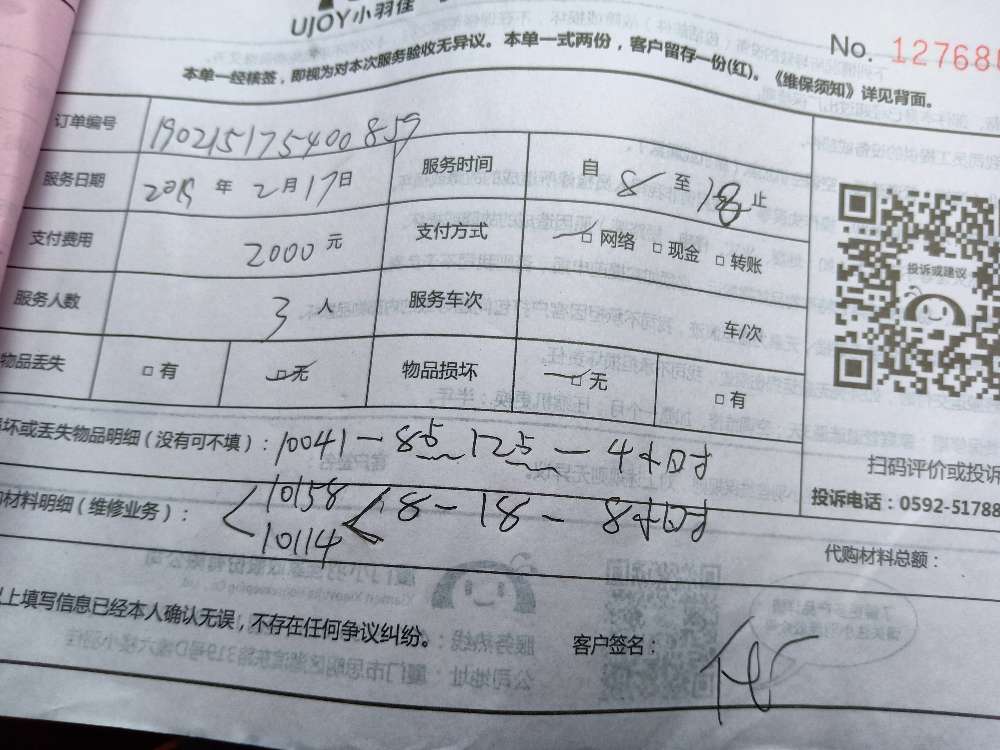 UJOY小羽佳
No. 12768
本单一经核签，即视为对本次服务验收无异议。本单一式两份，客户留存一份(红)。《维保须知》详见背面。
订单编号 190215175400859
服务日期 2019 年 2 月 17 日 服务时间 自 8 至 18 止
支付费用 2000 元 支付方式 □ 网络 □ 现金 □ 转账
服务人数 3 服务车次 车/次
物品丢失 □ 有 □ 无 物品损坏 □ 无 □ 有
投诉或建议
坏或丢失物品明细（没有可不填）： 10041 - 8点 12点 - 4小时
材料明细（维修业务）： 10158 10114 8 - 18 - 8小时
扫码评价或投诉
投诉电话：0592-51788
代购材料总额：
上填写信息已经本人确认无误，不存在任何争议纠纷。
客户签名：